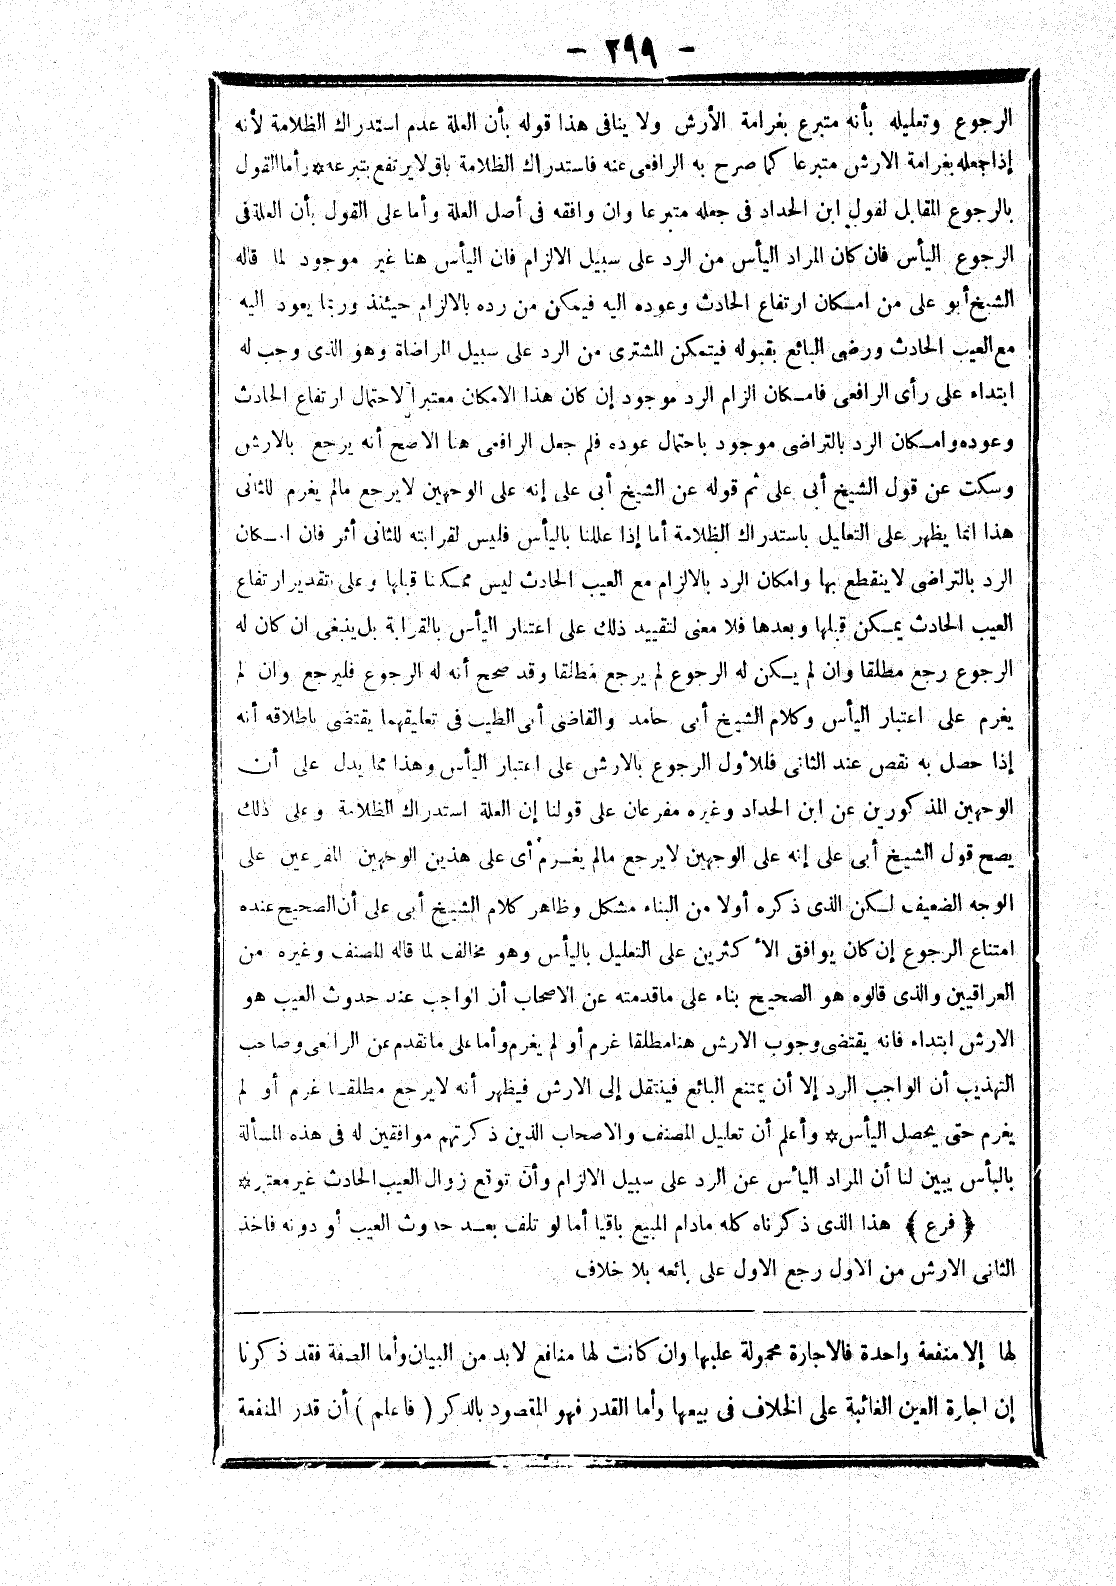 — ٢٩٩ —
الرجوع وتعليله بأنه متبرع بغرامة الأرش ولا ينافى هذا قوله بأن العلة عدم استدراك الظلامة لأنه
إذا جعله بغرامة الارش متبرعا كما صرح به الرافعى عنه فاستدراك الظلامة باق لا يرتفع بتبرعه * وأما القول
بالرجوع المقابل لقول ابن الحداد فى جعله متبرعا وان وافقه فى أصل العلة وأما على القول بأن العلة فى
الرجوع اليأس فان كان المراد اليأس من الرد على سبيل الالزام فان اليأس هنا غير موجود لما قاله
الشيخ أبو على من امكان ارتفاع الحادث وعوده اليه فيمكن من رده بالالزام حينئذ وربما يعود اليه
مع العيب الحادث ورضى البائع بقبوله فيتمكن المشترى من الرد على سبيل المراضاة وهو الذى وجب له
ابتداء على رأى الرافعى فامكان الزام الرد موجود إن كان هذا الامكان معتبرا لاحتمال ارتفاع الحادث
وعوده وامكان الرد بالتراضى موجود باحتمال عوده فلم جعل الرافعى هنا الاصح أنه يرجع بالارش
وسكت عن قول الشيخ أبى على ثم قوله عن الشيخ أبى على إنه على الوجهين لا يرجع مالم يغرم للثانى
هذا انما يظهر على التعليل باستدراك الظلامة أما إذا عللنا باليأس فليس لقرابته للثانى أثر فان امكان
الرد بالتراضى لا ينقطع بها وامكان الرد بالالزام مع العيب الحادث ليس ممكنا قبلها وعلى تقدير ارتفاع
العيب الحادث يمكن قبلها وبعدها فلا معنى لتقييد ذلك على اعتبار اليأس بالقرابة بل ينبغى ان كان له
الرجوع رجع مطلقا وان لم يكن له الرجوع لم يرجع مطلقا وقد صحح أنه له الرجوع فليرجع وان لم
يغرم على اعتبار اليأس وكلام الشيخ أبى حامد والقاضى أبى الطيب فى تعليقهما يقتضى باطلاقه أنه
إذا حصل به نقص عند الثانى فللأول الرجوع بالارش على اعتبار اليأس وهذا مما يدل على أن
الوجهين المذكورين عن ابن الحداد وغيره مفرعان على قولنا إن العلة استدراك الظلامة وعلى ذلك
يصح قول الشيخ أبى على إنه على الوجهين لا يرجع مالم يغرم أى على هذين الوجهين المفرعين على
الوجه الضعيف لكن الذى ذكره أولا من البناء مشكل وظاهر كلام الشيخ أبى على أن الصحيح عنده
امتناع الرجوع إن كان يوافق الأكثرين على التعليل باليأس وهو مخالف لما قاله المصنف وغيره من
العراقيين والذى قالوه هو الصحيح بناء على ماقدمته عن الاصحاب أن الواجب عند حدوث العيب هو
الارش ابتداء فانه يقتضى وجوب الارش هنا مطلقا غرم أو لم يغرم وأما على ماتقدم عن الرافعى وصاحب
التهذيب أن الواجب الرد إلا أن يمتنع البائع فينتقل إلى الارش فيظهر أنه لا يرجع مطلقا غرم أو لم
يغرم حتى يحصل اليأس * وأعلم أن تعليل المصنف والاصحاب الذين ذكرتهم موافقين له فى هذه المسألة
باليأس يبين لنا أن المراد اليأس عن الرد على سبيل الالزام وأن توقع زوال العيب الحادث غير معتبر *
﴿ فرع ﴾ هذا الذى ذكرناه كله مادام المبيع باقيا أما لو تلف بعد حدوث العيب أو دونه فاخذ
الثانى الارش من الاول رجع الاول على بائعه بلا خلاف
لها إلا منفعة واحدة فالاجارة محمولة عليها وان كانت لها منافع لابد من البيان وأما الصفة فقد ذكرنا
إن اجارة العين الغائبة على الخلاف فى بيعها وأما القدر فهو المقصود بالذكر ( فاعلم ) أن قدر المنفعة